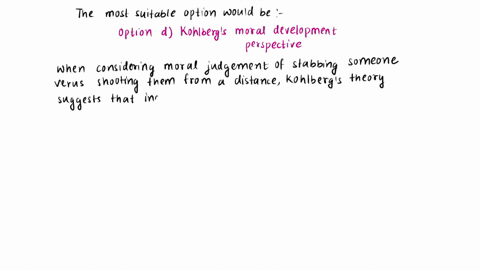 The most suitable option would be :-
Option d) Kohlberg's moral development
perspective
When considering moral judgement of stabbing someone
verus shooting them from a distance, Kohlberg's theory
suggests that inc